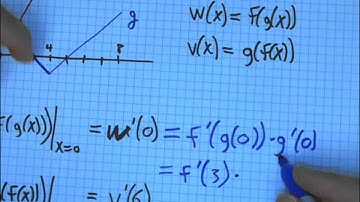 g
4 8
w(x) = f(g(x))
v(x) = g(f(x))
f(g(x))|x=0 = w'(0) = f'(g(0))·g'(0)
= f'(3)·
f(x))| = v'(6)